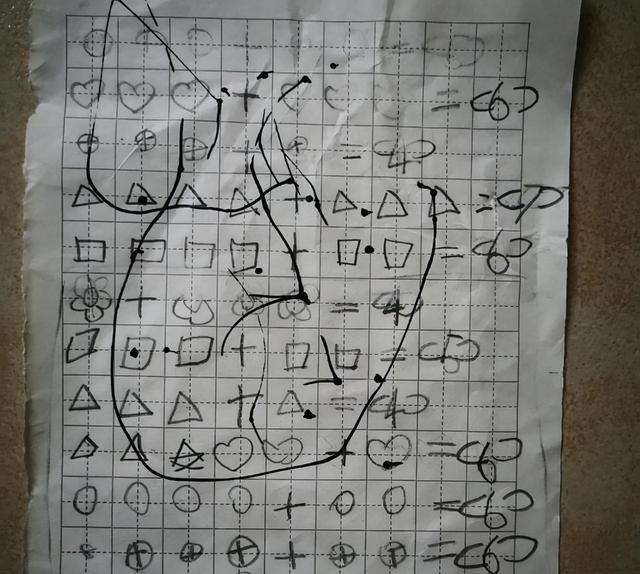 ♡ ♡ ♡ + ♡ ♡ ♡ = 6
⊕ ⊕ ⊕ + ⊕ = 4
△ △ △ △ + △ △ △ = 7
□ □ □ □ + □ □ = 6
+ = 4
□ □ □ + □ □ = 5
△ △ △ + △ = 4
△ △ △ ♡ ♡ + ♡ = 6
○ ○ ○ ○ + ○ ○ = 6
⊕ ⊕ ⊕ ⊕ + ⊕ ⊕ = 6